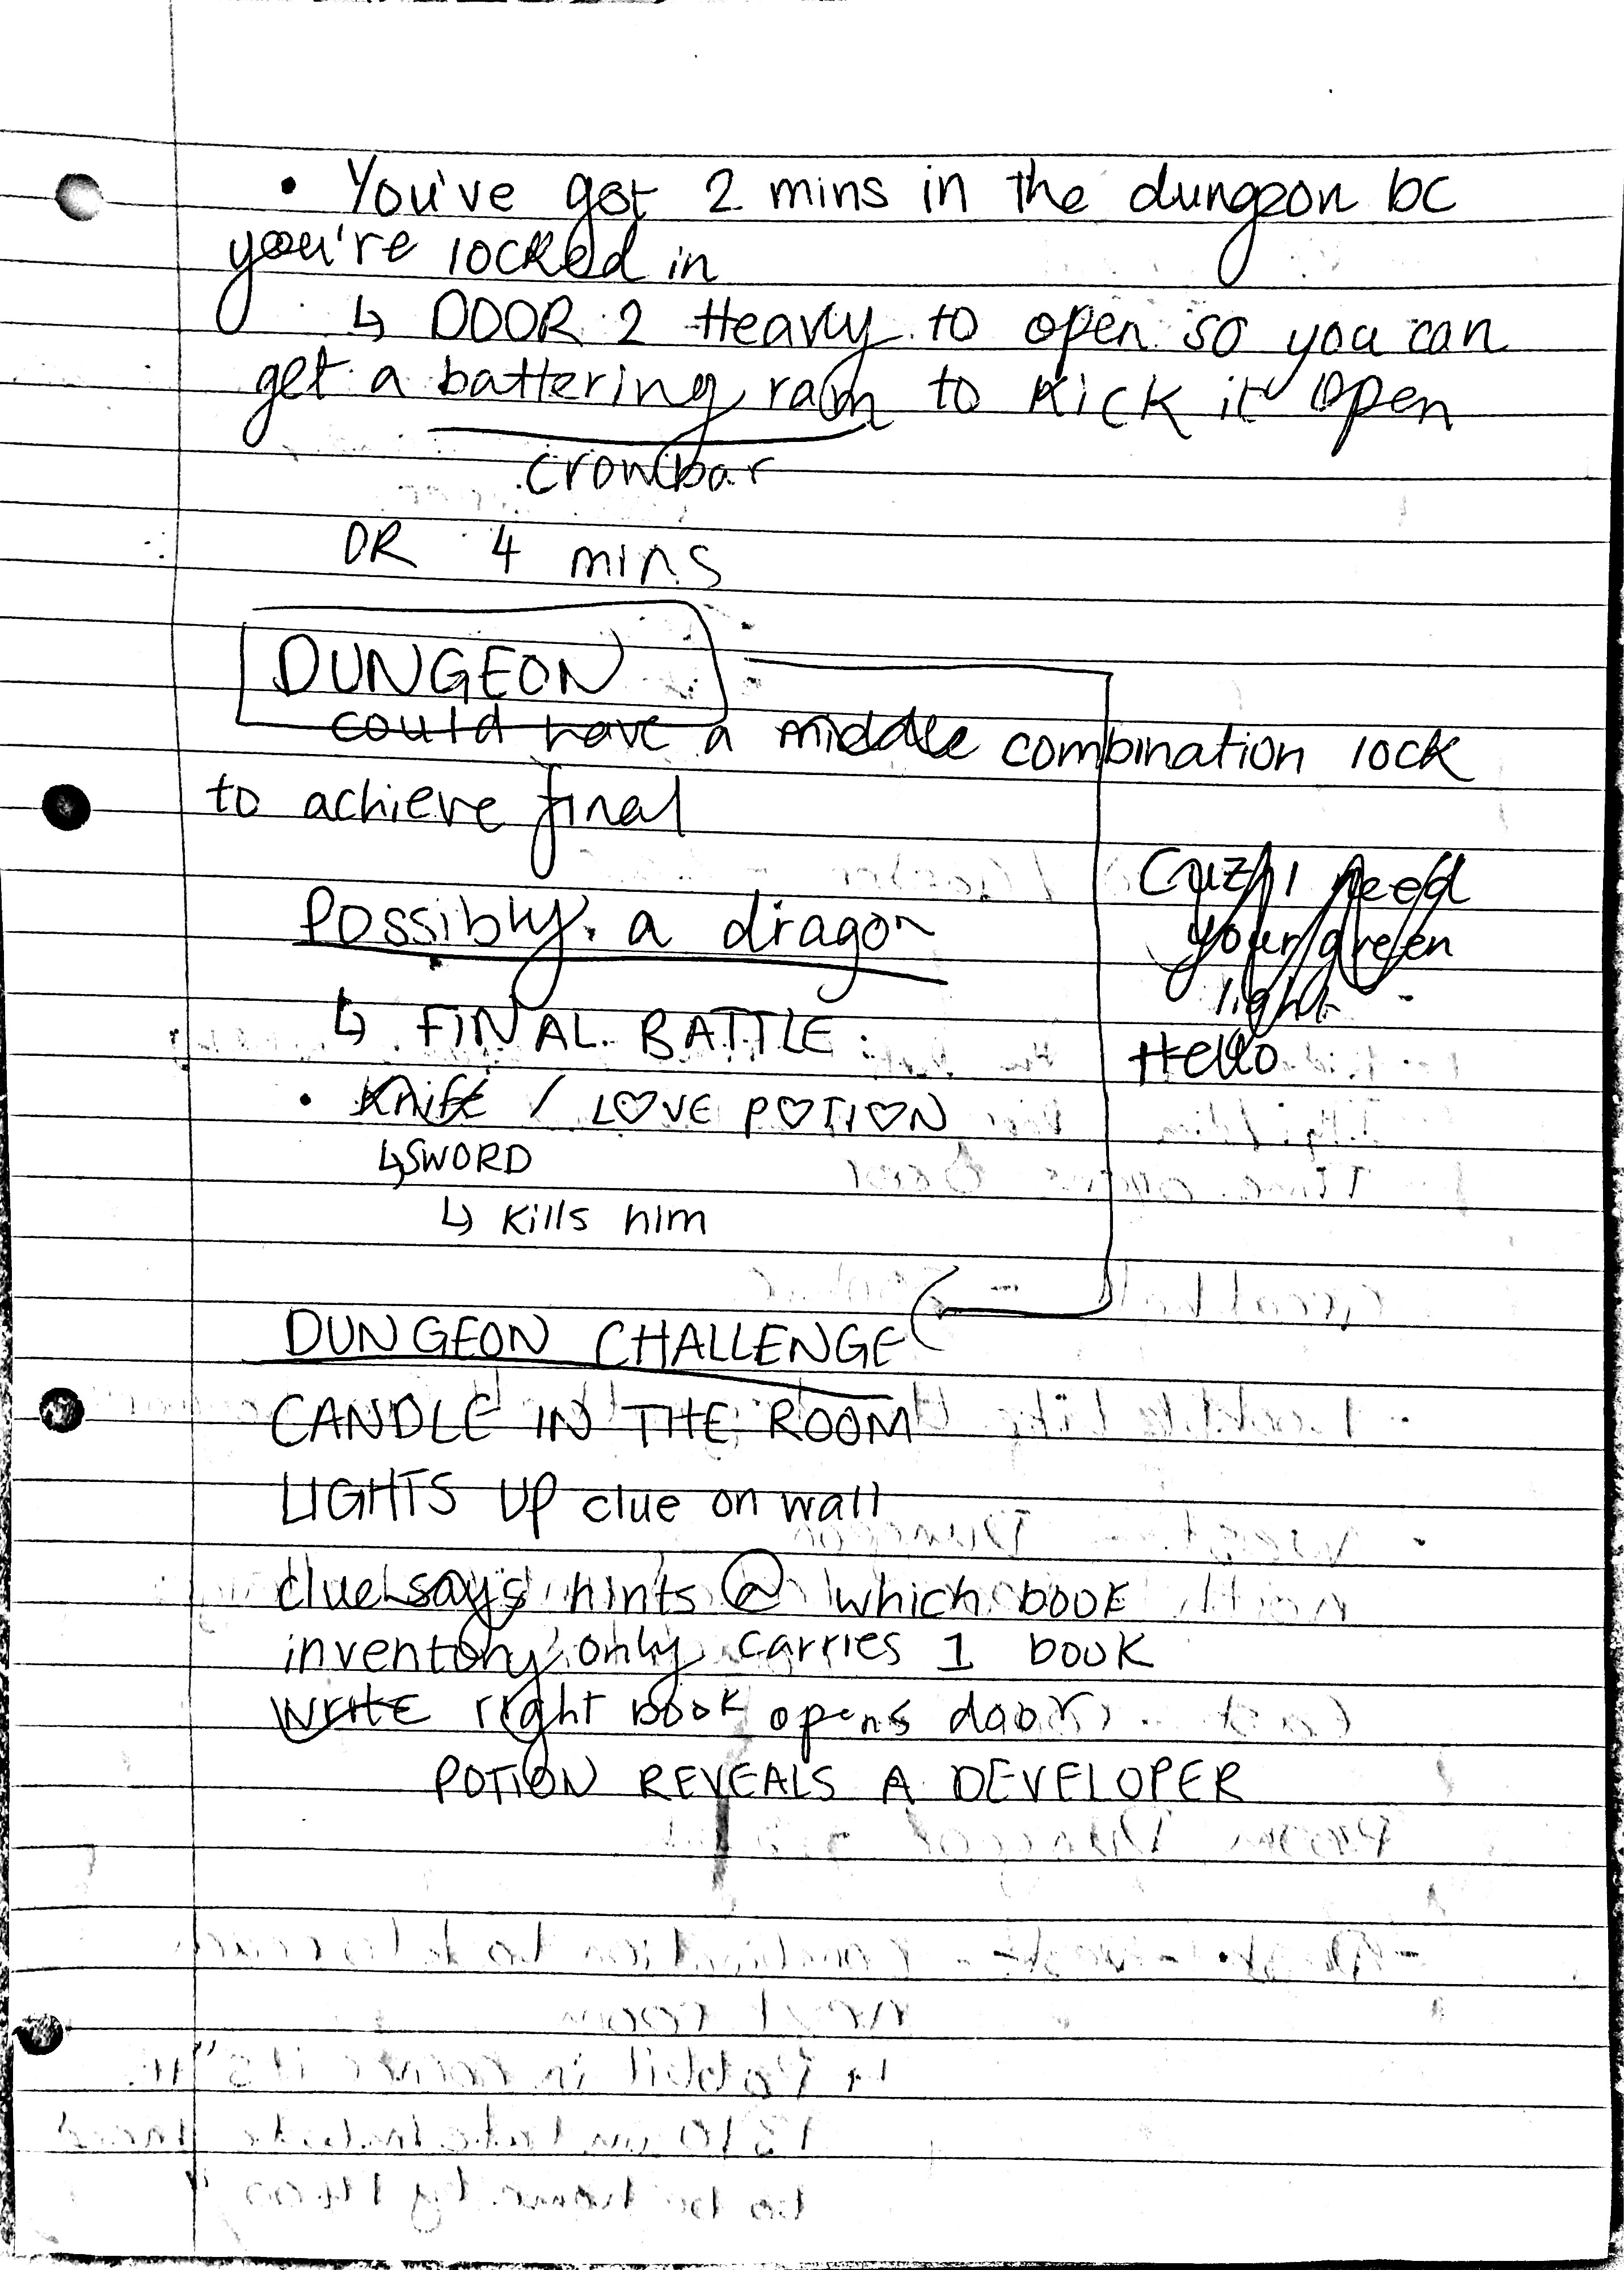 • You've got 2 mins in the dungeon bc
you're locked in
↳ DOOR 2 Heavy to open so you can
get a battering ram to kick it open
crowbar
OR 4 mins
DUNGEON
could have a middle combination lock
to achieve final
Cuz I need
your green
light
Hello
Possibly a dragon
↳ FINAL BATTLE:
• Knife / LOVE POTION
↳ SWORD
↳ kills him
DUNGEON CHALLENGE
CANDLE IN THE ROOM
LIGHTS UP clue on wall
clue says hints @ which book
inventory only carries 1 book
write right book opens door
POTION REVEALS A DEVELOPER